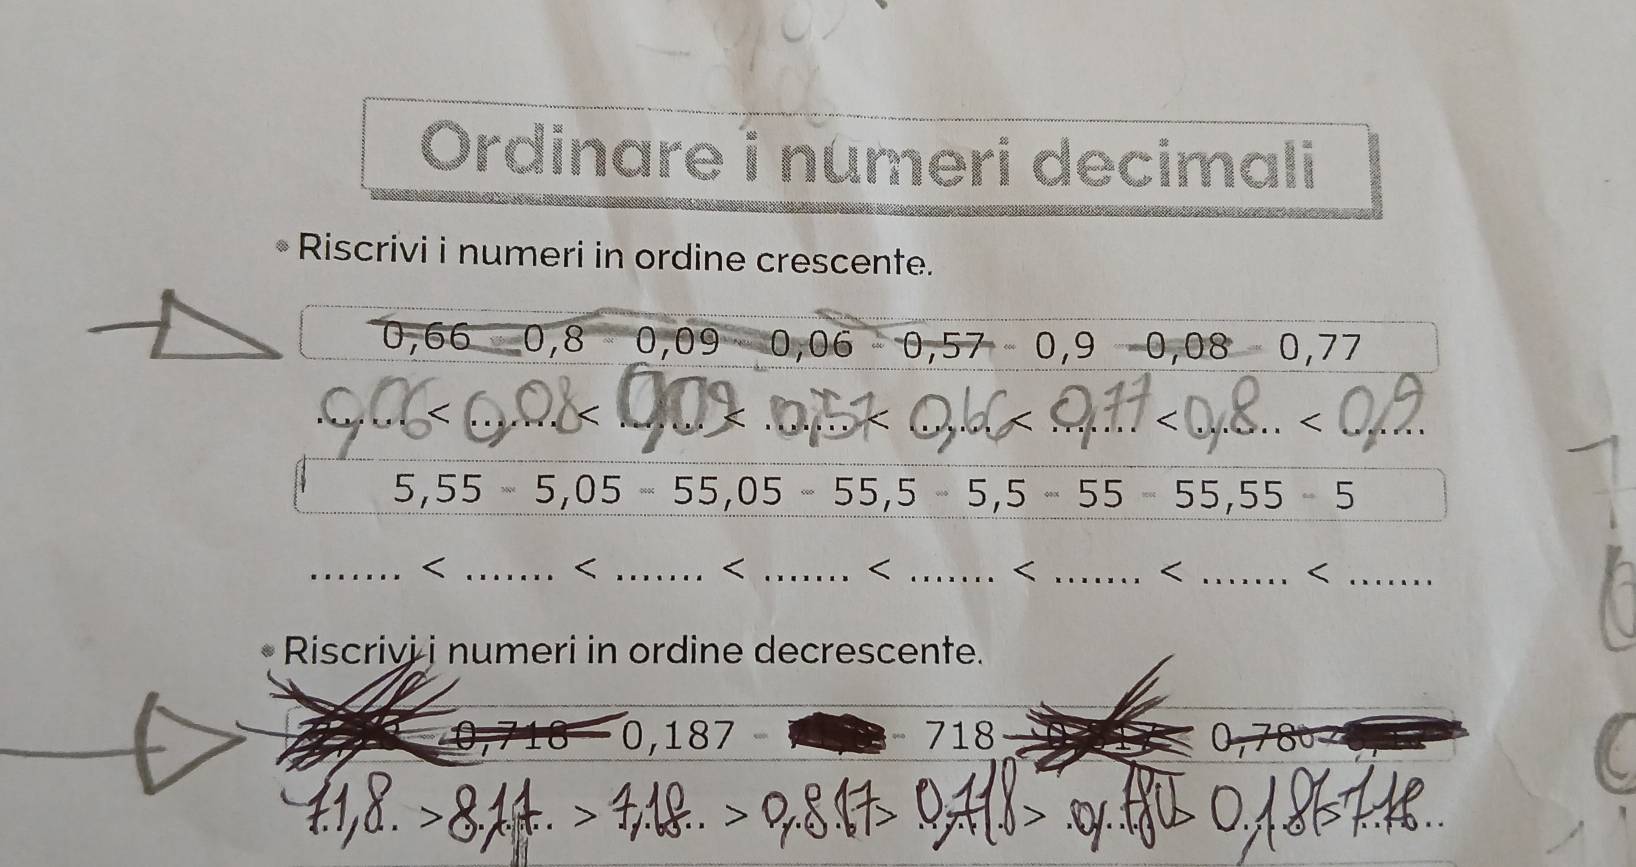 Ordinare i numeri decimali
• Riscrivi i numeri in ordine crescente.
0,66 - 0,8 - 0,09 - 0,06 - 0,57 - 0,9 - 0,08 - 0,77
0,06 < 0,08 < 0,09 < 0,57 < 0,66 < 0,77 < 0,8 < 0,9
5,55 - 5,05 - 55,05 - 55,5 - 5,5 - 55 - 55,55 - 5
....... < ....... < ....... < ....... < ....... < ....... < ....... < .......
• Riscrivi i numeri in ordine decrescente.
0,718 - 0,187 - - 718 - 0,780
71,8 > 8,17 > 7,18 > 0,817 > 0,718 > 0,780 > 0,187 > 718